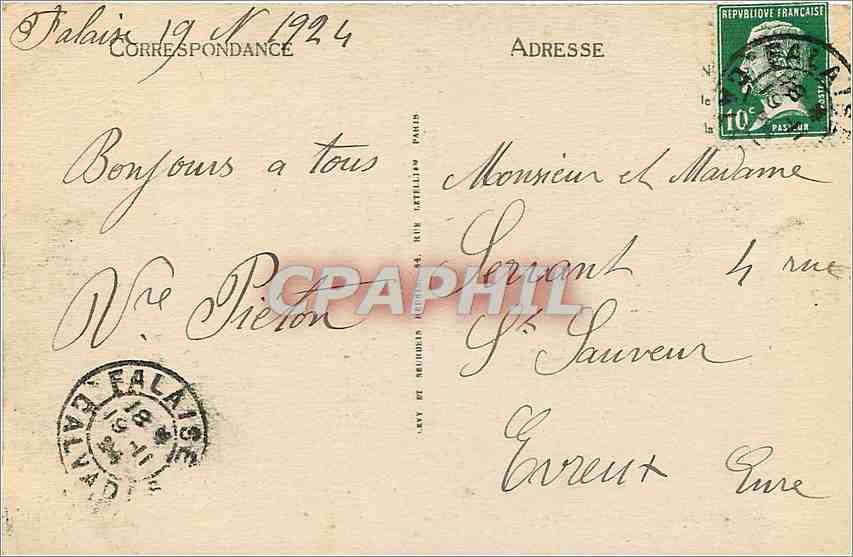 Falaise 19 N 1924
CORRESPONDANCE
Bonjours a tous
Vre Piéton
FALAISE
18
19-11
24
CALVADOS
LEVY ET NEURDEIN RÉUNIS, 44, RUE LETELLIER PARIS
ADRESSE
Monsieur et Madame
Servant 4 rue
St Sauveur
Evreux Eure
REPVBLIQUE FRANÇAISE
POSTES
10c
PASTEUR
FALAISE
CPAPHIL